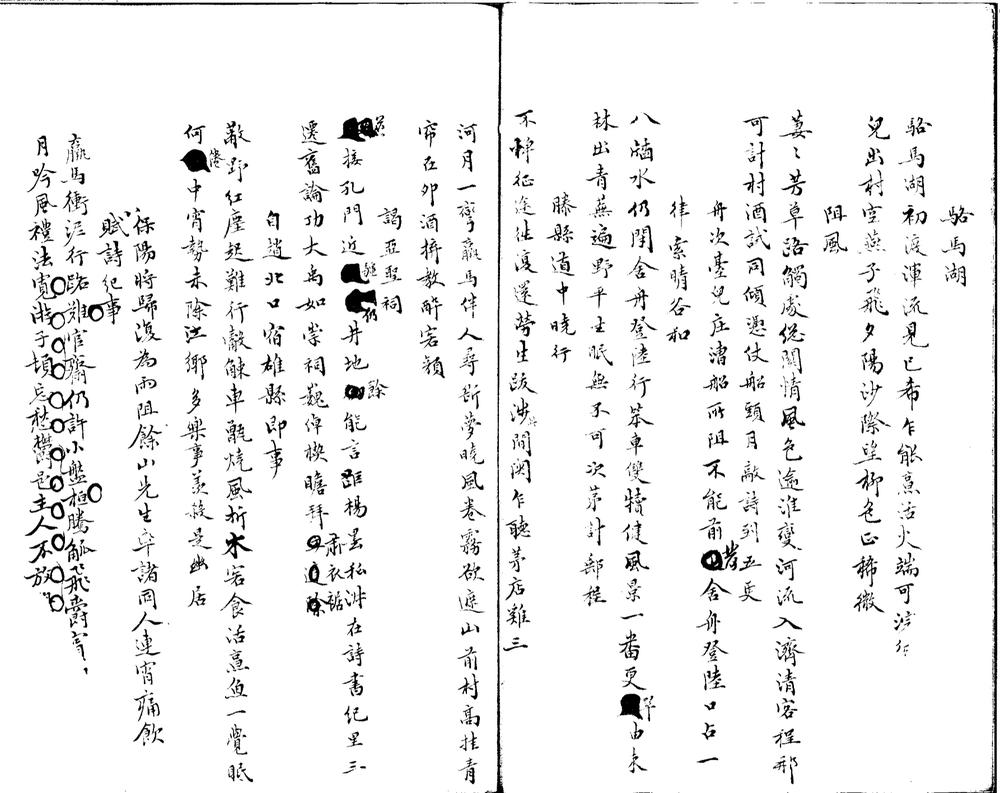 駱馬湖
駱馬湖初渡渾流見已希乍能烹活火端可
兒出村空燕子飛夕陽沙際望柳色正稀微
阻風
萋〻芳草路觸處總關情風色逾淮變河流入濟清客程那
可計村酒試同傾憑仗船頭月敲詩到五更
舟次臺兒庄漕船所阻不能前舍舟登陸口占一
律索晴谷和
八牐水仍閉舍舟登陸行笨車雙犢健風景一番更由來
林出青蕪遍野平生眠無不可次第計郵程
滕縣道中曉行
不憚征途往復還勞生跋涉間関乍聽茅店雞三
河月一彎羸馬伴人尋斷夢曉風卷霧欲遮山前村高挂青
帘在卯酒擠教酡客顏
謁亞聖祠
接孔門近井地能言距楊墨私淑在詩書紀里三
遷舊論功大禹如崇祠巍倬楔瞻拜肅衣裾
自趙北口宿雄縣即事
敵野紅塵起難行觳觫車甎燒風折木客食活烹魚一覺眠
何中宵勢未除江鄉多樂事羨殺是幽居
保陽時歸復為雨阻餘山先生率諸同人連宵痛飲
賦詩紀事
羸馬衝泥行路難官齋仍許小盤桓騰觚飛爵宵〻
月吟風禮法寬游子頓忘愁鬱是主人不放